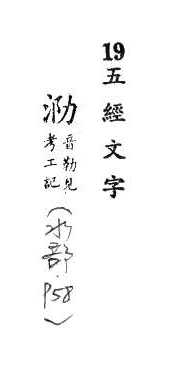 19五經文字
泐音勒見
考工記
(水部·P58)